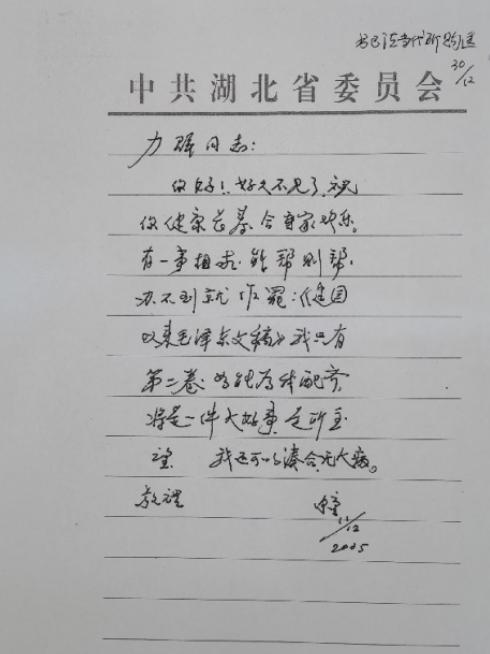 30/12
中共湖北省委员会
力强同志:
你好!好久不见了,祝
你健康长寿合家欢乐。
有一事相求,能帮则帮,
办不到就作罢:《建国
以来毛泽东文稿》我只有
第二卷,如能为我配齐,
将是一件大好事,是所至
望 我还可以凑合,无大病。
敬礼
11/12
2005